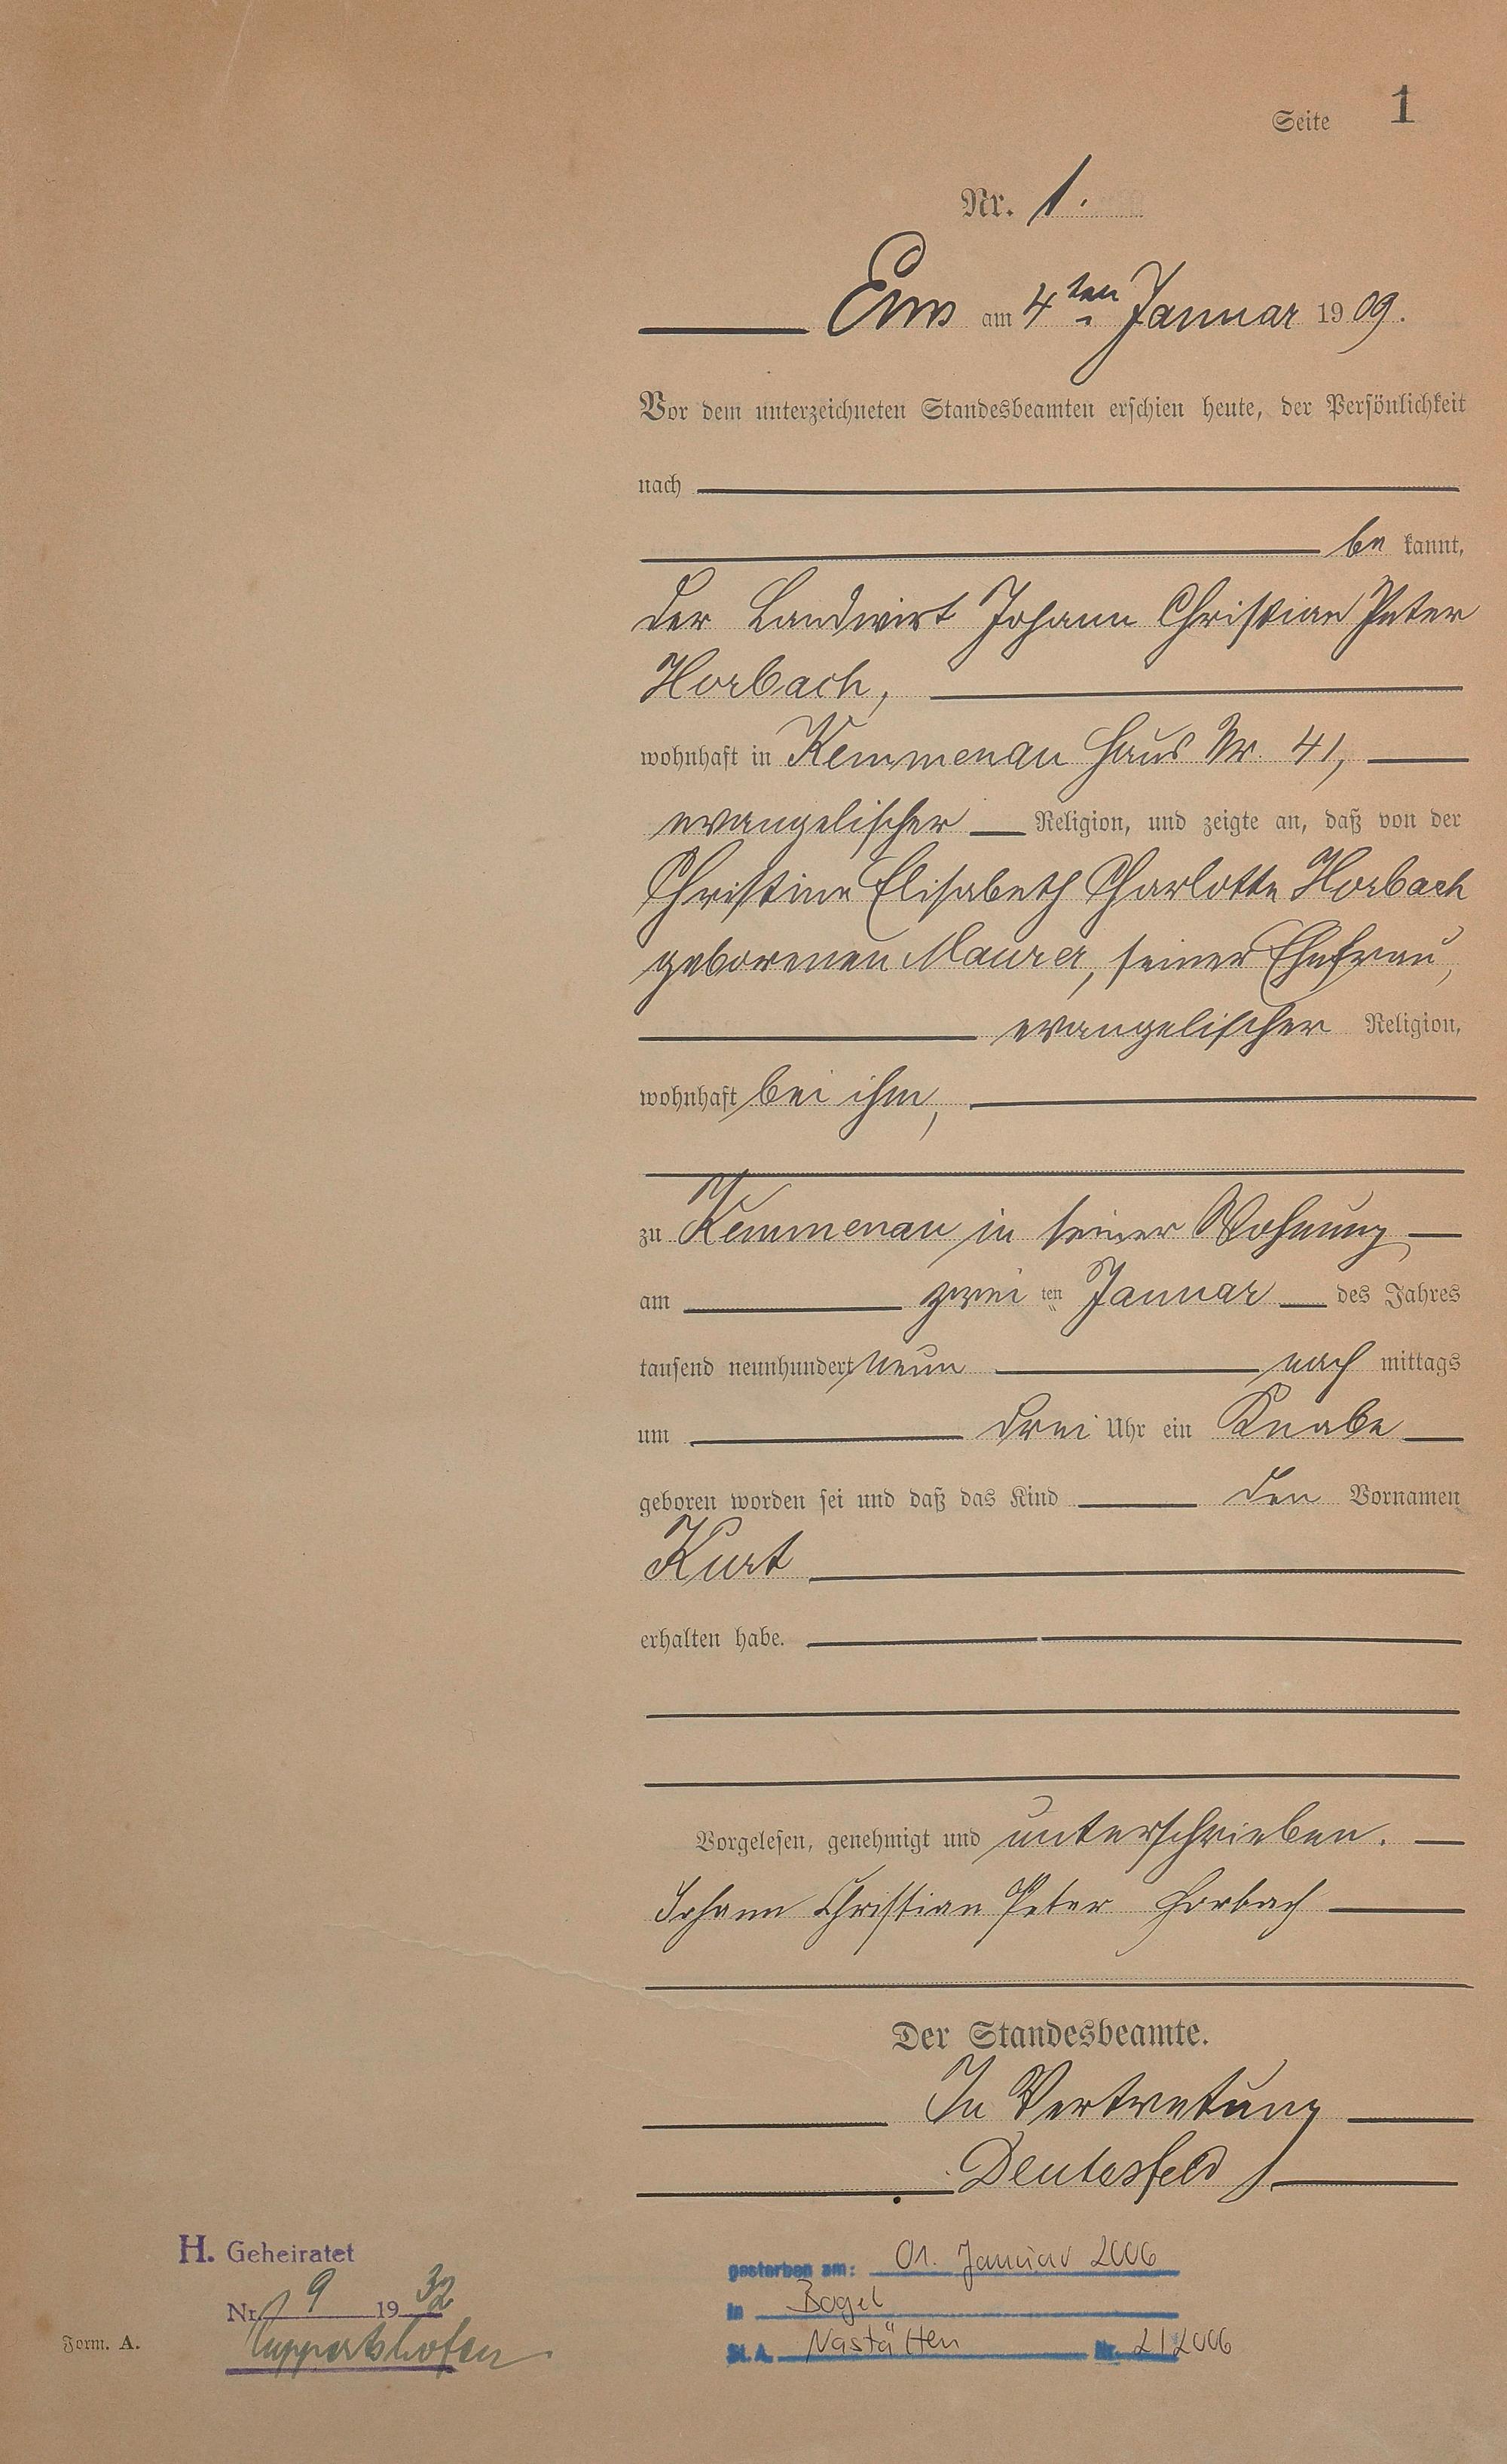 Seite 1
Nr. 1.
Ems am 4ten Januar 1909.
Vor dem unterzeichneten Standesbeamten erschien heute, der Persönlichkeit
nach
be kannt,
der Landwirt Johann Christian Peter
Horbach,
wohnhaft in Kemmenau Haus Nr. 41,
evangelischer Religion, und zeigte an, daß von der
Christine Elisabeth Charlotte Horbach
geborenen Maurer, seiner Ehefrau,
evangelischer Religion,
wohnhaft bei ihm,
zu Kemmenau in seiner Wohnung
am zwei ten Januar des Jahres
tausend neunhundert neun nach mittags
um drei Uhr ein Knabe
geboren worden sei und daß das Kind den Vornamen
Kurt
erhalten habe.
Vorgelesen, genehmigt und unterschrieben.
Johann Christian Peter Horbach
Der Standesbeamte.
In Vertretung
Deutesfeld
H. Geheiratet
Nr. 9 1932
Ruppertshofen
Form. A.
gestorben am: 01. Januar 2006
in Bogel
St. A. Nastätten Nr. 2/2006